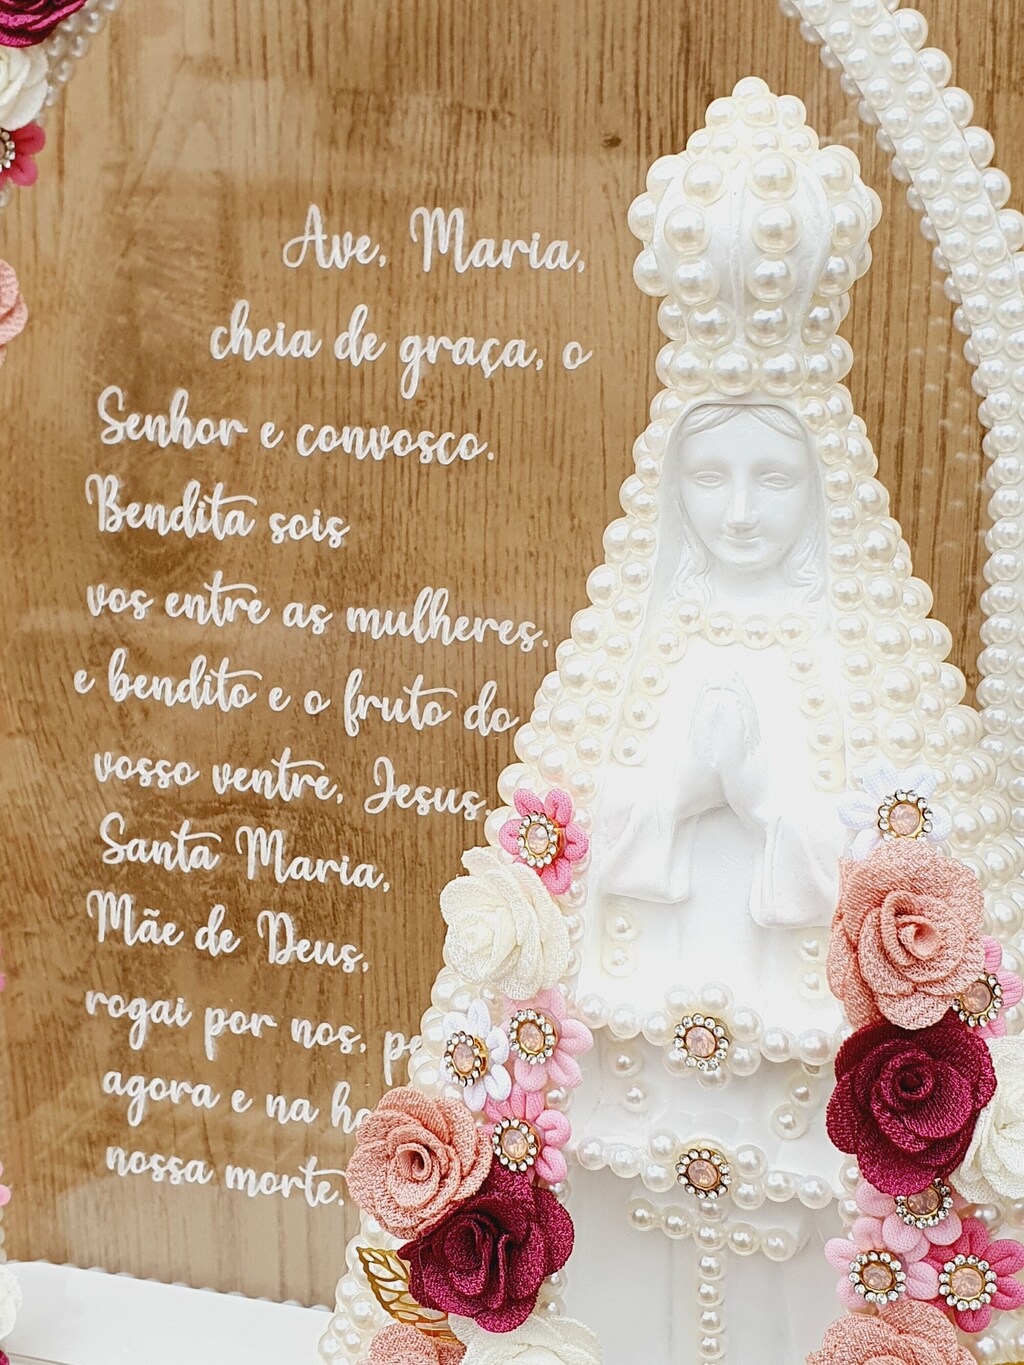 Ave, Maria,
cheia de graça, o
Senhor e convosco.
Bendita sois
vos entre as mulheres.
e bendito e o fruto do
vosso ventre, Jesus.
Santa Maria,
Mãe de Deus,
rogai por nos,
agora e na
nossa morte.